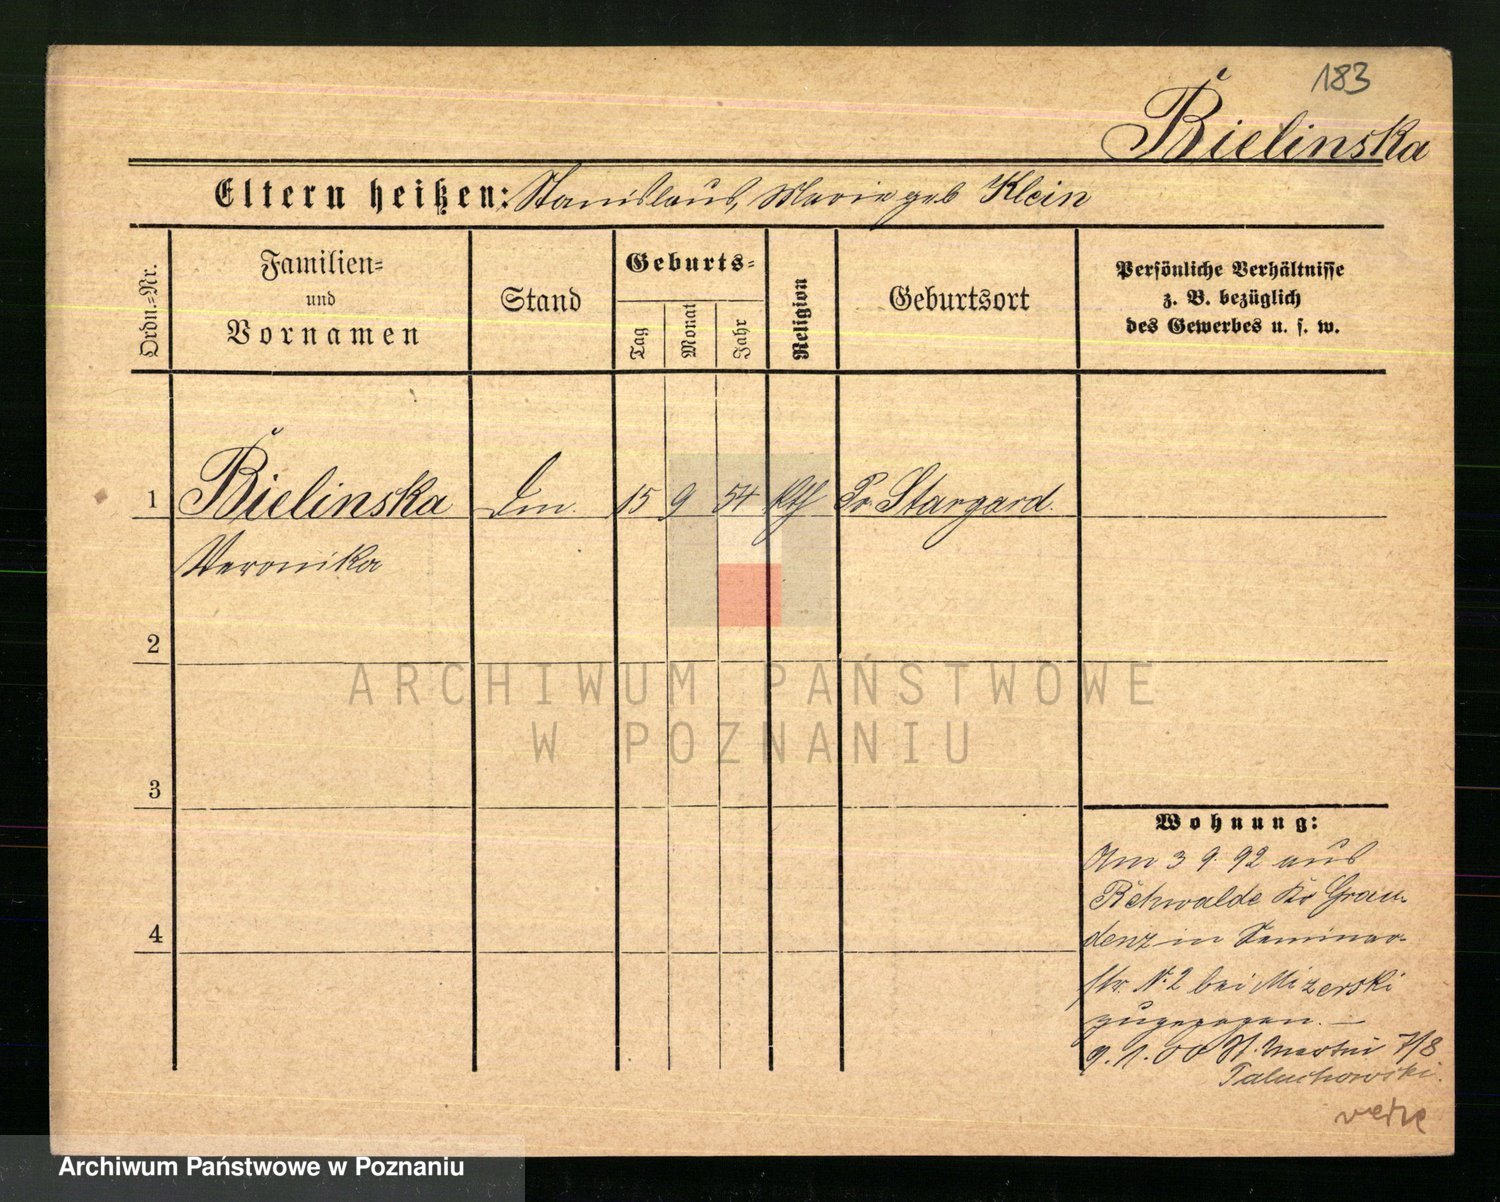 183
Bielinska
Eltern heißen: Stanislaus, Marie geb Klein
Ordn.-Nr.
Familien-
und
Vornamen
Stand
Geburts-
Tag
Monat
Jahr
Religion
Geburtsort
Persönliche Verhältnisse
z. B. bezüglich
des Gewerbes u. s. w.
1 Bielinska 15 9 54 kth Pr. Stargard.
Veronika
2
ARCHIWUM PAŃSTWOWE
W POZNANIU
3
Wohnung:
Am 3 9. 92 aus
Rehwalde Kr Grau-
4
denz in Seminar-
str. N. 2 bei Mizerski
zugezogen. —
9. 1. 00 St. Martin 7/8
Paluchowski.
Archiwum Państwowe w Poznaniu